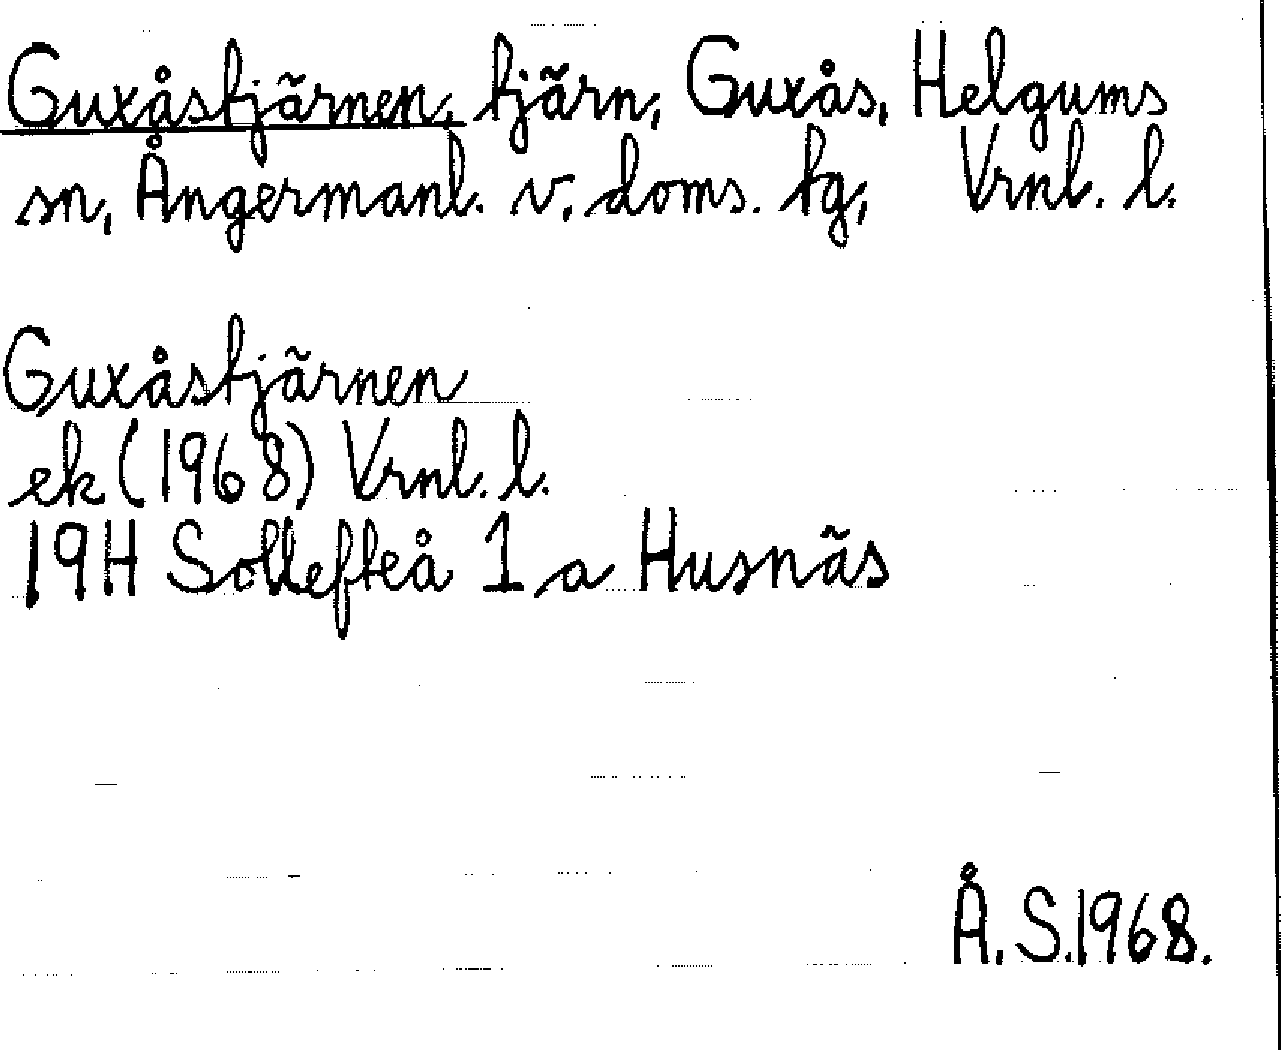 Guxåstjärnen, tjärn, Guxås, Helgums
sn, Ångermanl. v. doms. tg, Vrnl. l.
Guxåstjärnen
ek (1968) Vrnl. l.
19H Sollefteå 1 a Husnäs
Å. S. 1968.